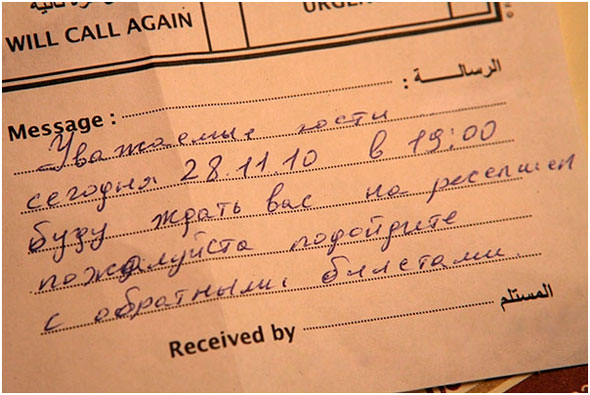 WILL CALL AGAIN
Message : الرسالـــة :
Уважаемые гости
сегодня 28.11.10 в 19:00
буду ждать вас на ресепшен
пожалуйста подойдите
с обратными билетами.
Received by المستلم